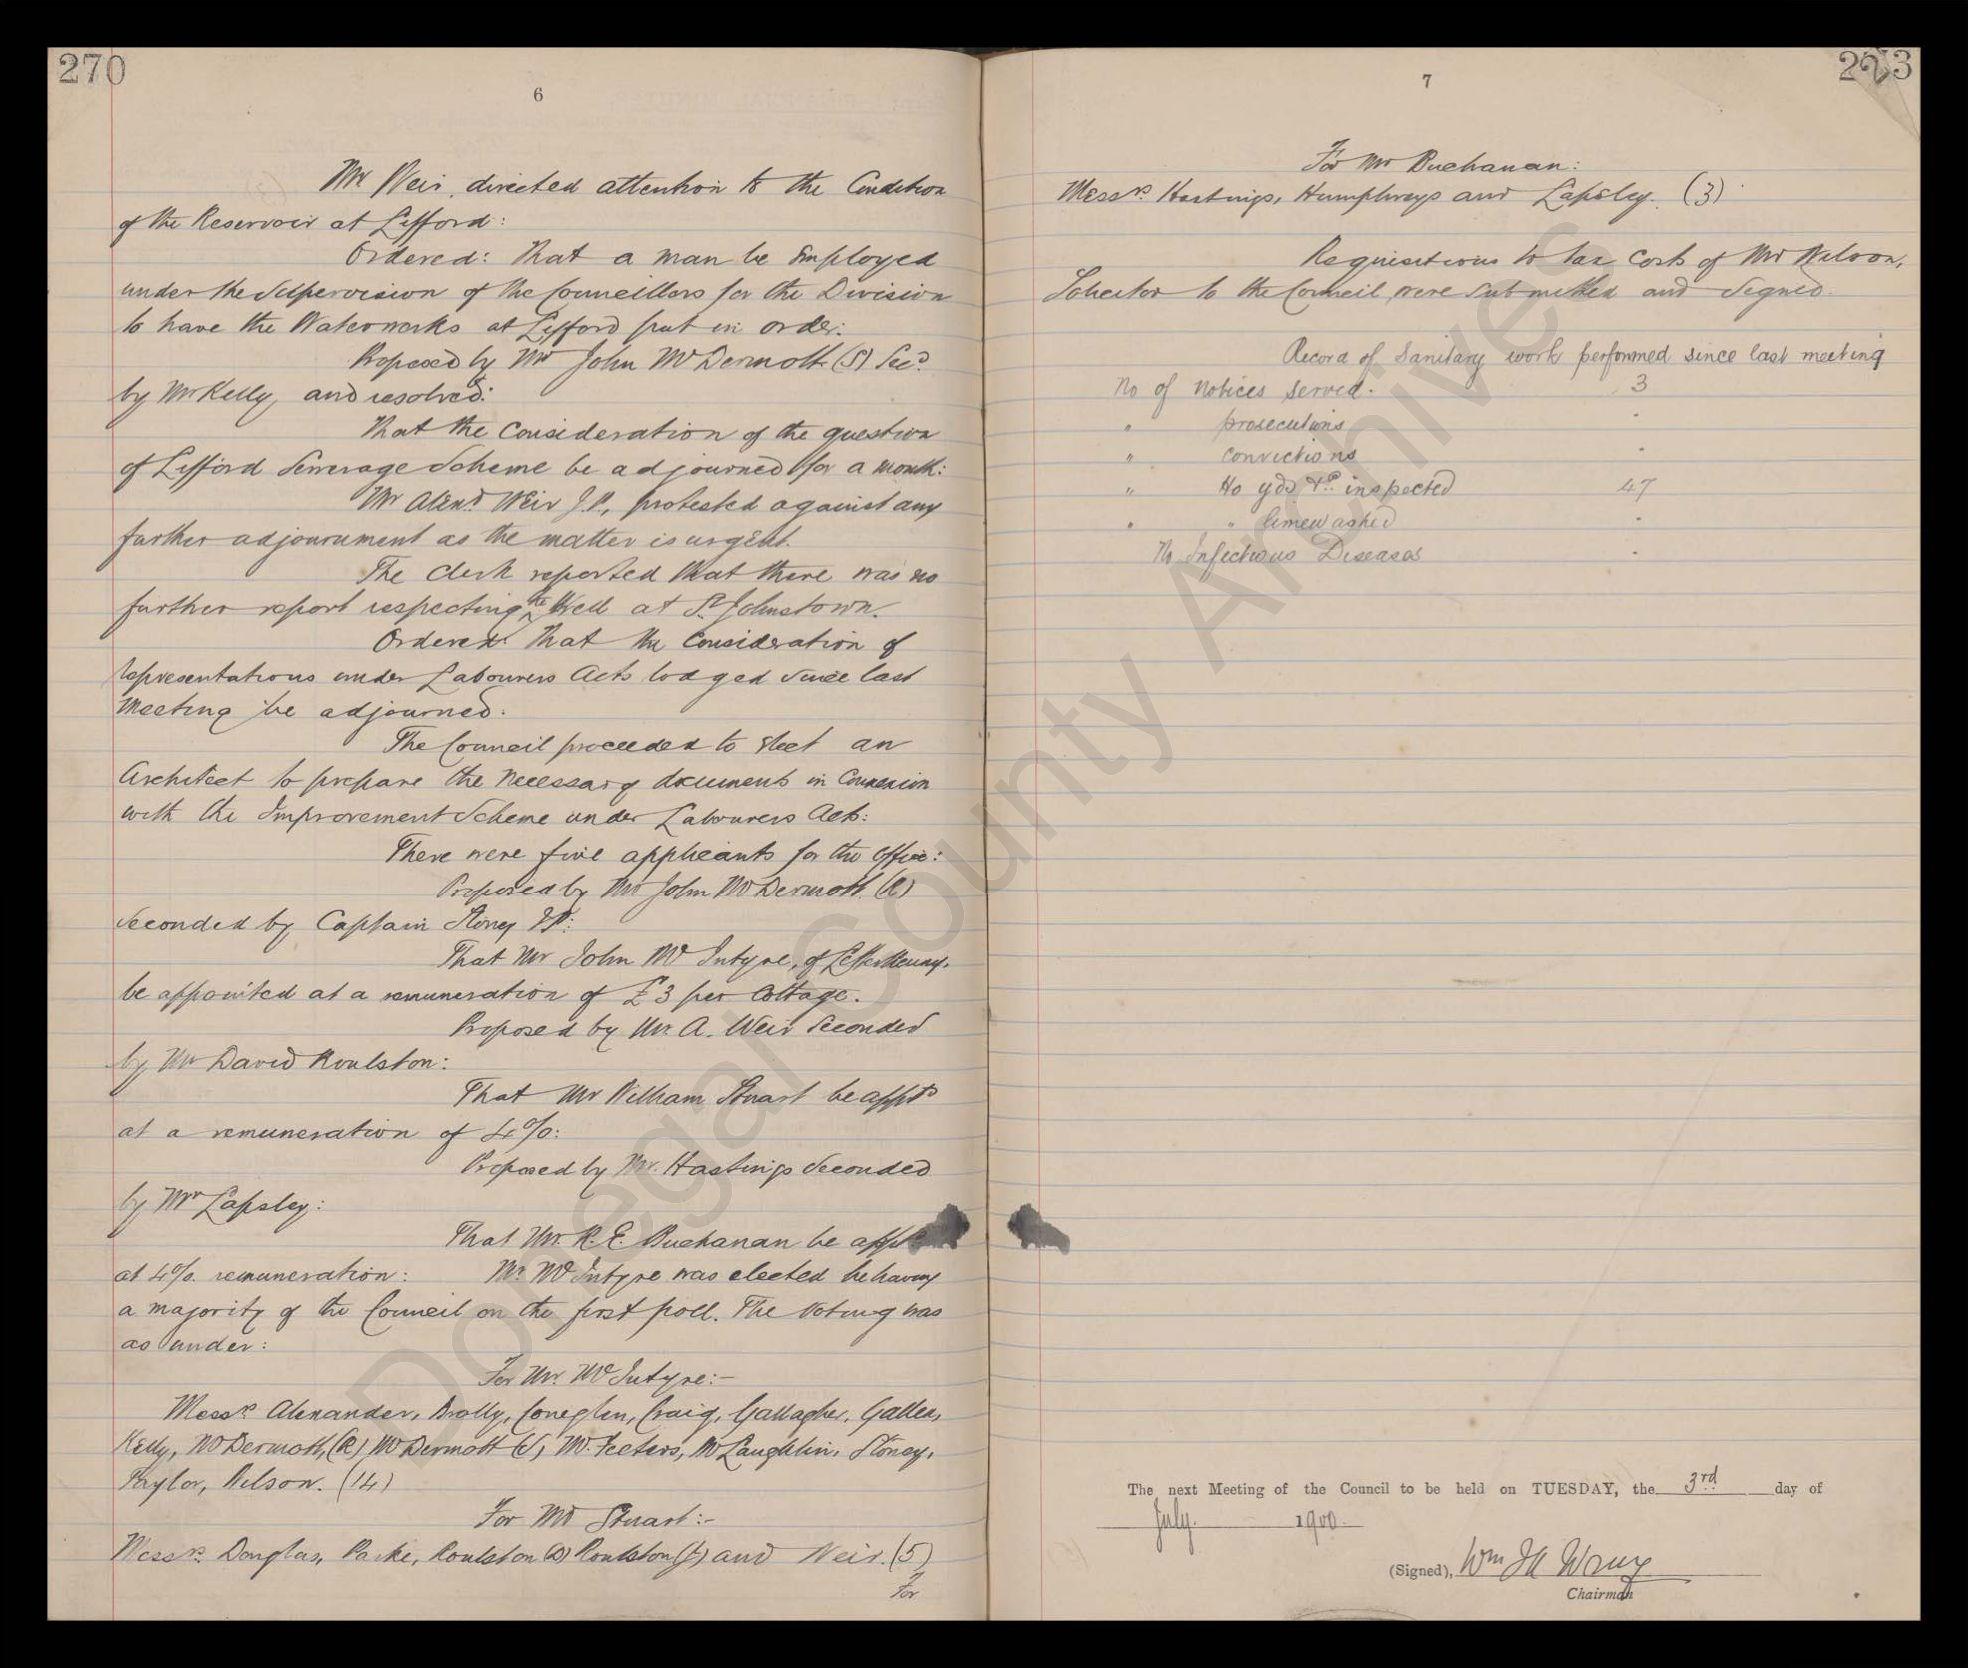 270
6
Mr Weir, directed attention to the Condition
of the Reservoir at Lifford:
Ordered: That a man be Employed
under the Supervision of the Councillors for the Division
to have the Waterworks at Lifford put in order:
Proposed by Mr John McDermott (S) Secd
by Mr Kelly, and resolved:
That the Consideration of the question
of Lifford Sewerage Scheme be adjourned for a month:
Mr Alexr Weir J.P., protested against any
further adjournment as the matter is urgent.
The Clerk reported that there was no
further report respecting the Well at St Johnstown.
Ordered: That the Consideration of
representations under Labourers Acts lodged since last
Meeting be adjourned.
The Council proceeded to Elect an
Architect to prepare the Necessary documents in Connexion
with the Improvement Scheme under Labourers Acts:
There were five applicants for the Office:
Proposed by Mr John McDermott (R)
Seconded by Captain Stoney JP:
That Mr John McIntyre, of Letterkenny,
be appointed at a remuneration of £3 per Cottage.
Proposed by Mr A. Weir Seconded
by Mr David Roulston:
That Mr William Stuart be apptd
at a remuneration of 4%:
Proposed by Mr. Hastings Seconded
by Mr Lapsley:
That Mr. R. E. Buchanan be appt
at 4% remuneration: Mr. McIntyre was elected he having
a majority of the Council on the first poll. The Voting was
as under:
For Mr. McIntyre:-
Messrs Alexander, Brolly, Coneglen, Craig, Gallagher, Gallen,
Kelly, McDermott, (R) McDermott (S) McFeeters, McLaughlin, Stoney,
Taylor, Wilson. (14)
For Mr Stuart:-
Messrs. Douglas, Parke, Roulston (D) Roulston (J) and Weir. (5)
For
7
For Mr Buchanan:
Messrs. Hastings, Humphreys and Lapsley. (3)
Requisitions to tax Costs of Mr Wilson,
Solicitor to the Council were submitted and Signed.
Record of Sanitary work performed since last meeting
No of Notices served. 3
" prosecutions -
" convictions -
" Ho yds &c inspected 47
" " limewashed -
No Infectious Diseases -
The next Meeting of the Council to be held on TUESDAY, the 3rd day of
July. 1900.
(Signed), Wm
Chairman
Donegal County Archives